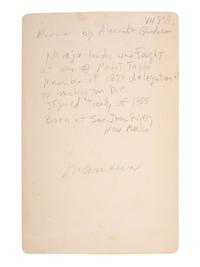 by Alexander Gardner
Navajo leader who fought
at war @ Mount Taylor
member of 1874 delegation
to Washington D.C.
Signed Treaty of 1855
Born at San Juan River,
New Mexico